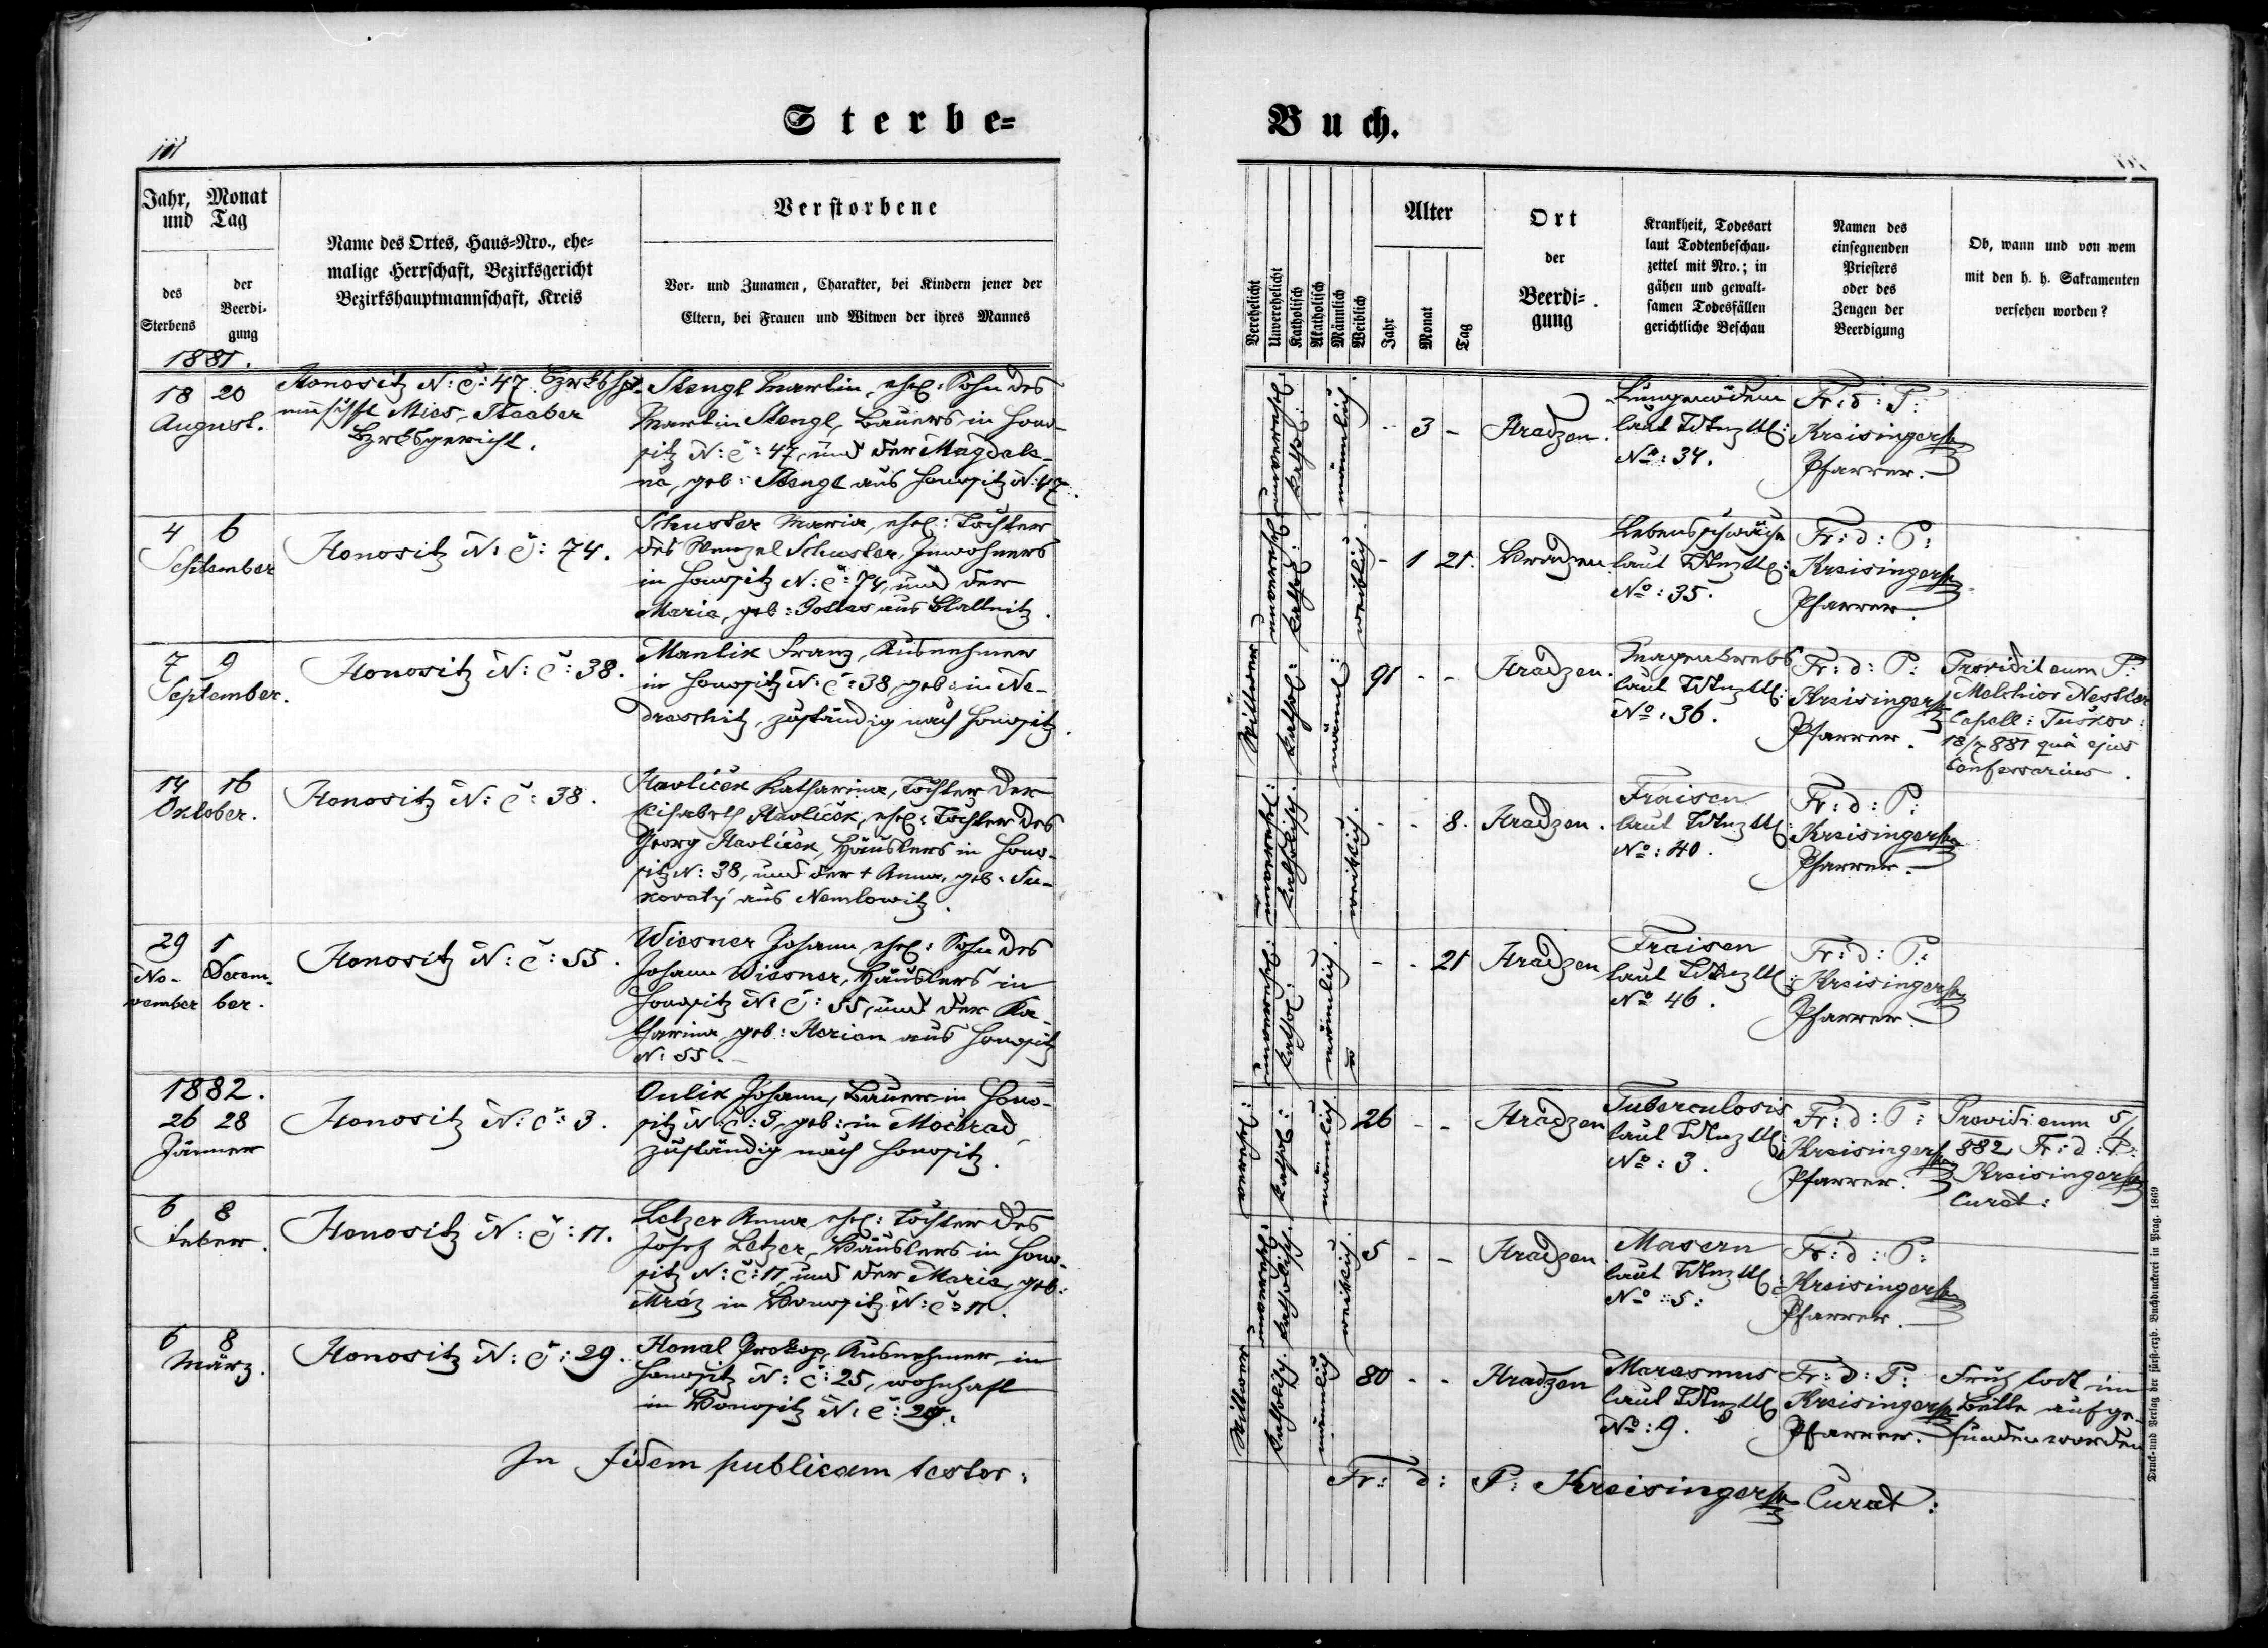 Sterbe=
Buch.
Jahr, Monat
und Tag
des
Sterbens
der
Beerdi-
gung
Name des Ortes, Haus=Nro., ehe=
malige Herrschaft, Bezirksgericht
Bezirkshauptmannschaft, Kreis
Verstorbene
Vor- und Zunamen, Charakter, bei Kindern jener der
Eltern, bei Frauen und Witwen der ihres Mannes
Verehelicht
Unverehelicht
Katholisch
Akatholisch
Männlich
Weiblich
Alter
Jahr
Monat
Tag
Ort
der
Beerdi=
gung
Krankheit, Todesart
laut Todtenbeschau-
zettel mit Nro.; in
gähen und gewalt-
samen Todesfällen
gerichtliche Beschau
Namen des
einsegnenden
Priesters
oder des
Zeugen der
Beerdigung
Ob, wann und von wem
mit den h. h. Sakramenten
versehen worden?
1881.
18 20
August.
Honositz N: č: 47. Bzrkshpt-
Mies, Staaber
Bzrksgericht.
Stengl Martin, ehel: Sohn des
Martin Stengl, Bauers in Hono-
sitz N: č: 47, und der Magdale-
na, geb: Stengl aus Honositz N: 47.
unverehel:
kathol:
männlich.
- 3 -
Hradzen.
Lungenödem
laut
No: 34.
Fr: d: P:
Kreisinger
Pfarrer.
4 6
September
Honositz N: č: 74.
Schuster Maria, ehel: Tochter
des Wenzel Schuster, Inwohners
in Honositz N: č: 74, und der
Maria, geb: aus
unverehel:
kathol:
weiblich.
- 1 21.
Hradzen.
Lebensschwäche
laut
No: 35.
Fr: d: P:
Kreisinger
Pfarrer
7 9
September.
Honositz N: č: 38.
Manlik Franz, Ausnehmer
in Honositz N: č: 38, geb: in Ne-
draschitz, zuständig nach Honositz.
Wittwer
kathol:
männl:
91 - -
Hradzen.
Magenkrebs
laut
No: 36.
Fr: d: P:
Kreisinger
Pfarrer.
Providit eum P:
Melchior Nessler
Capell: Tuškov:
18/7 881 quà ejus
Confessarius.
14 16
Oktober.
Honositz N: č: 38.
Havlíček Katharina, Tochter der
Elisabeth Havlíček, ehel: Tochter des
Georg Havlíček, Häuslers in Hono-
sitz N: 38, und der + Anna, geb:
aus Nemlowitz.
unverehel:
katholisch.
weiblich.
- - 8.
Hradzen.
Fraisen
laut
No: 40.
Fr: d: P:
Kreisinger
Pfarrer.
29 1
No- Decem-
vember ber.
Honositz N: č: 55.
Wiesner Johann, ehel: Sohn des
Johann Wiesner, Häuslers in
Honositz N: č: 55, und der Ka-
tharina, geb: Horian aus Honositz
N: 55.
unverehel:
kathol:
männlich.
- - 21
Hradzen
Fraisen
laut
No 46.
Fr: d: P:
Kreisinger
Pfarrer.
1882.
26 28
Jänner
Honositz N: č: 3.
Oulik Johann, Bauer in Hono-
sitz N: č: 3, geb: in Močerad,
zuständig nach Honositz.
verehel:
kathol:
männlich.
26 - -
Hradzen
Tuberculosis
laut
No: 3.
Fr: d: P:
Kreisinger
Pfarrer.
Providi eum 5/1
882 Fr: d: P:
Kreisinger
Curat:
6 8
Feber.
Honositz N: č: 11.
Letzer Anna, ehel: Tochter des
Josef Letzer, Häuslers in Hono-
sitz N: č: 11, und der Maria, geb:
Mráz in Honositz N: č: 11.
unverehel:
katholisch.
weiblich.
5 - -
Hradzen
Masern
laut
No: 5:
Fr: d: P:
Kreisinger
Pfarrer.
6 8
März.
Honositz N: č: 29.
Honal Prokop, Ausnehmer in
Honositz N: č: 25, wohnhaft
in Honositz N: č: 29.
Wittwer
katholisch.
männlich
80 - -
Hradzen
Marasmus
laut
No: 9.
Fr: d: P:
Kreisinger
Pfarrer.
Früh todt im
Bette aufge-
funden worden
In fidem publicam testor:
Fr: d: P: Kreisinger Curat:
Druck-und Verlag der fürst-erzb. Buchdruckerei in Prag. 1869